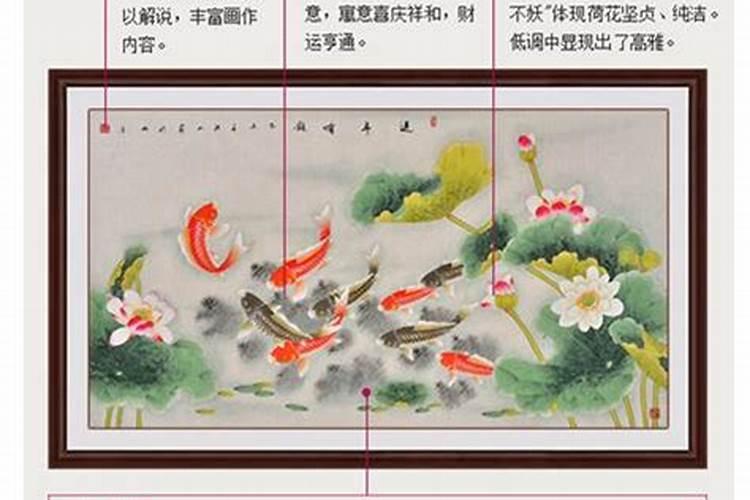 以解说，丰富画作
内容。
意，寓意喜庆祥和，财
运亨通。
不妖"体现荷花坚贞、纯洁。
低调中显现出了高雅。